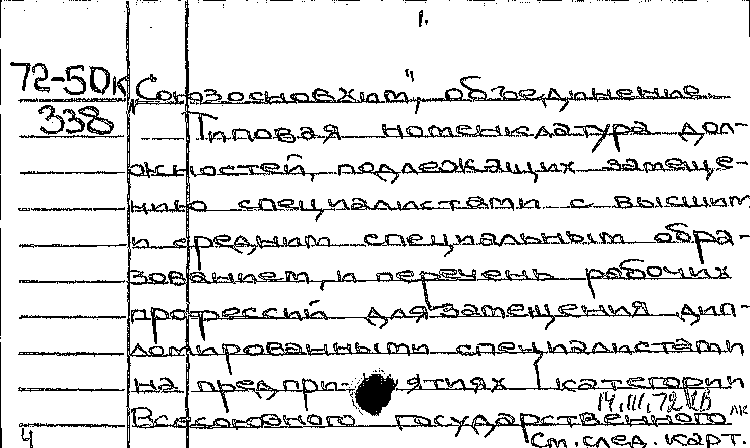 1.
72-50к "Союзосновхим", объединение.
338 Типовая номенклатура дол-
жностей, подлежащих замеще-
нию специалистами с высшим
и средним специальным обра-
зованием, и перечень рабочих
профессий для замещения дип-
ломированными специалистами
на предприятиях I категории
14.III.72
Всесоюзного государственного
4 См. след. карт.